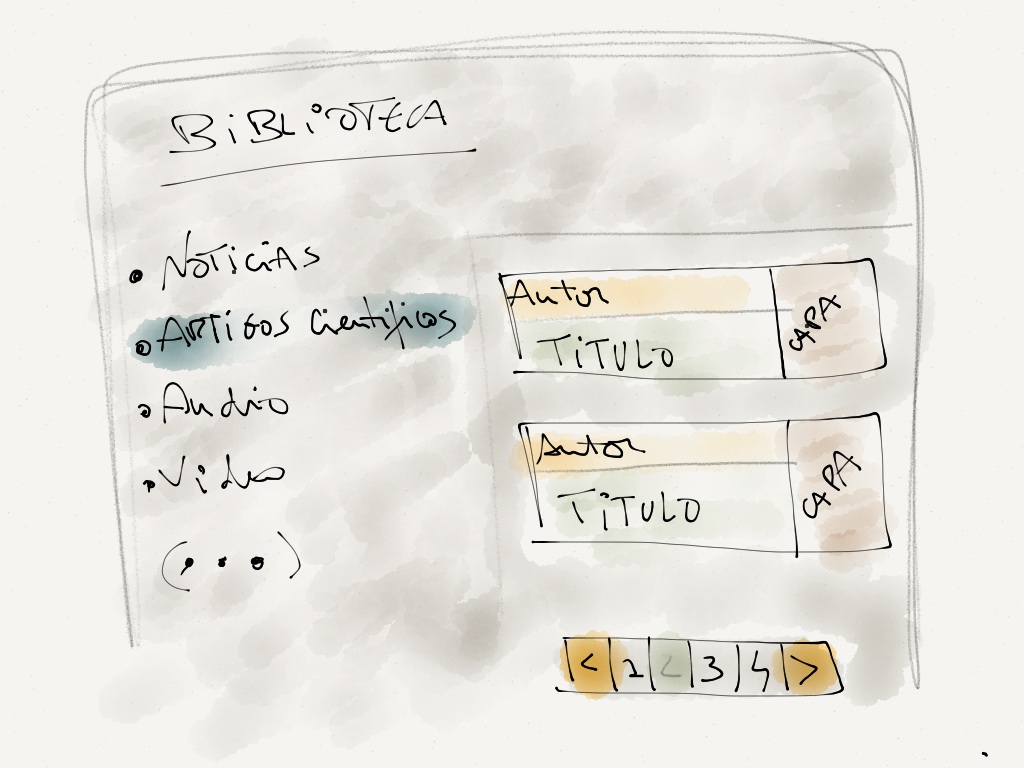 BIBLIOTECA
NOTICIAS
ARTIGOS Cientificos
Audio
Video
(...)
Autor
TITULO
CAPA
Autor
TITULO
CAPA
< 1 2 3 4 >